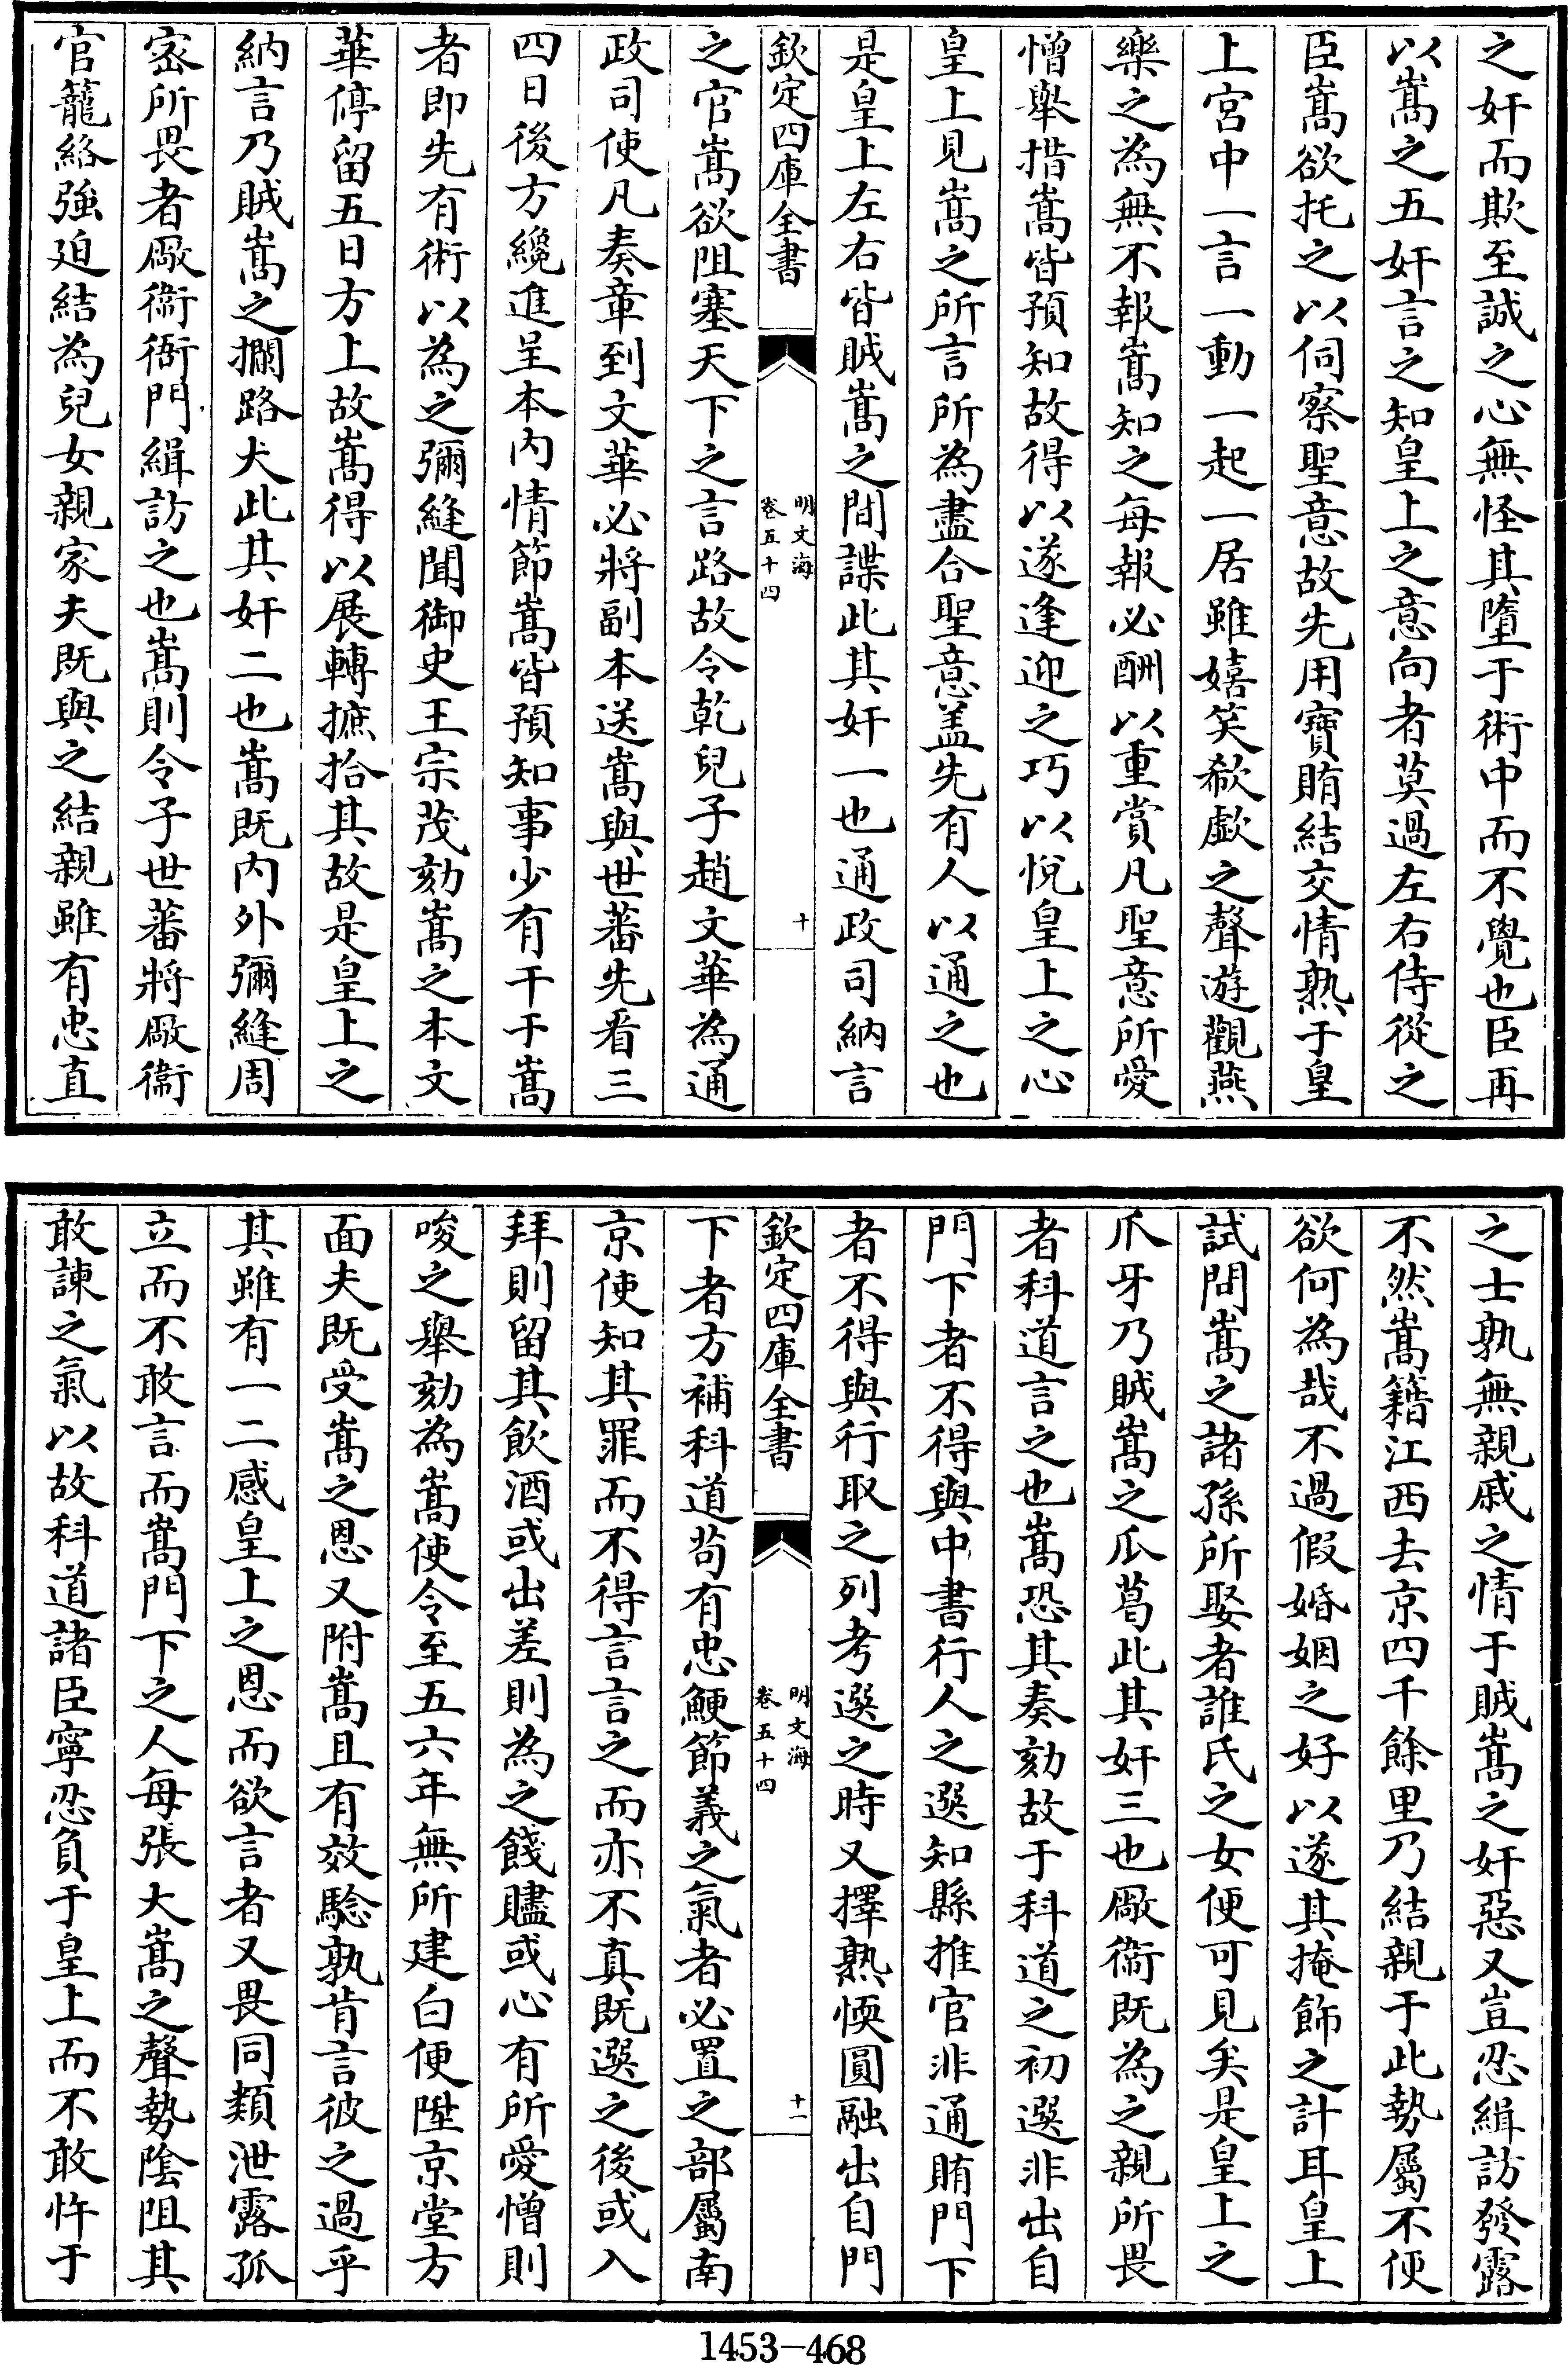 之奸而欺至誠之心無怪其墮于術中而不覺也臣再
以嵩之五奸言之知皇上之意向者莫過左右侍從之
臣嵩欲托之以伺察聖意故先用寶賄結交情熟于皇
上宮中一言一動一起一居雖嬉笑欷歔之聲遊觀燕
樂之為無不報嵩知之每報必酬以重賞凡聖意所愛
憎舉措嵩皆預知故得以遂逢迎之巧以悅皇上之心
皇上見嵩之所言所為盡合聖意盖先有人以通之也
是皇上左右皆賊嵩之間諜此其奸一也通政司納言
欽定四庫全書
明文海
卷五十四
十
之官嵩欲阻塞天下之言路故令乾兒子趙文華為通
政司使凡奏章到文華必將副本送嵩與世蕃先看三
四日後方纔進呈本內情節嵩皆預知事少有干于嵩
者即先有術以為之彌縫聞御史王宗茂劾嵩之本文
華停留五日方上故嵩得以展轉摭拾其故是皇上之
納言乃賊嵩之攔路犬此其奸二也嵩既內外彌縫周
密所畏者厰衞衙門緝訪之也嵩則令子世蕃將厰衞
官籠絡強迫結為兒女親家夫既與之結親雖有忠直
之士孰無親戚之情于賊嵩之奸惡又豈忍緝訪發露
不然嵩籍江西去京四千餘里乃結親于此勢屬不便
欲何為哉不過假婚姻之好以遂其掩飾之計耳皇上
試問嵩之諸孫所娶者誰氏之女便可見矣是皇上之
爪牙乃賊嵩之瓜葛此其奸三也厰衞既為之親所畏
者科道言之也嵩恐其奏劾故于科道之初選非出自
門下者不得與中書行人之選知縣推官非通賄門下
者不得與行取之列考選之時又擇熟愞圓融出自門
欽定四庫全書
明文海
卷五十四
十一
下者方補科道苟有忠鯁節義之氣者必置之部屬南
京使知其罪而不得言言之而亦不真既選之後或入
拜則留其飲酒或出差則為之餞贐或心有所愛憎則
唆之舉劾為嵩使令至五六年無所建白便陞京堂方
面夫既受嵩之恩又附嵩且有效驗孰肯言彼之過乎
其雖有一二感皇上之恩而欲言者又畏同類泄露孤
立而不敢言而嵩門下之人每張大嵩之聲勢陰阻其
敢諫之氣以故科道諸臣寧忍負于皇上而不敢忤于
1453-468